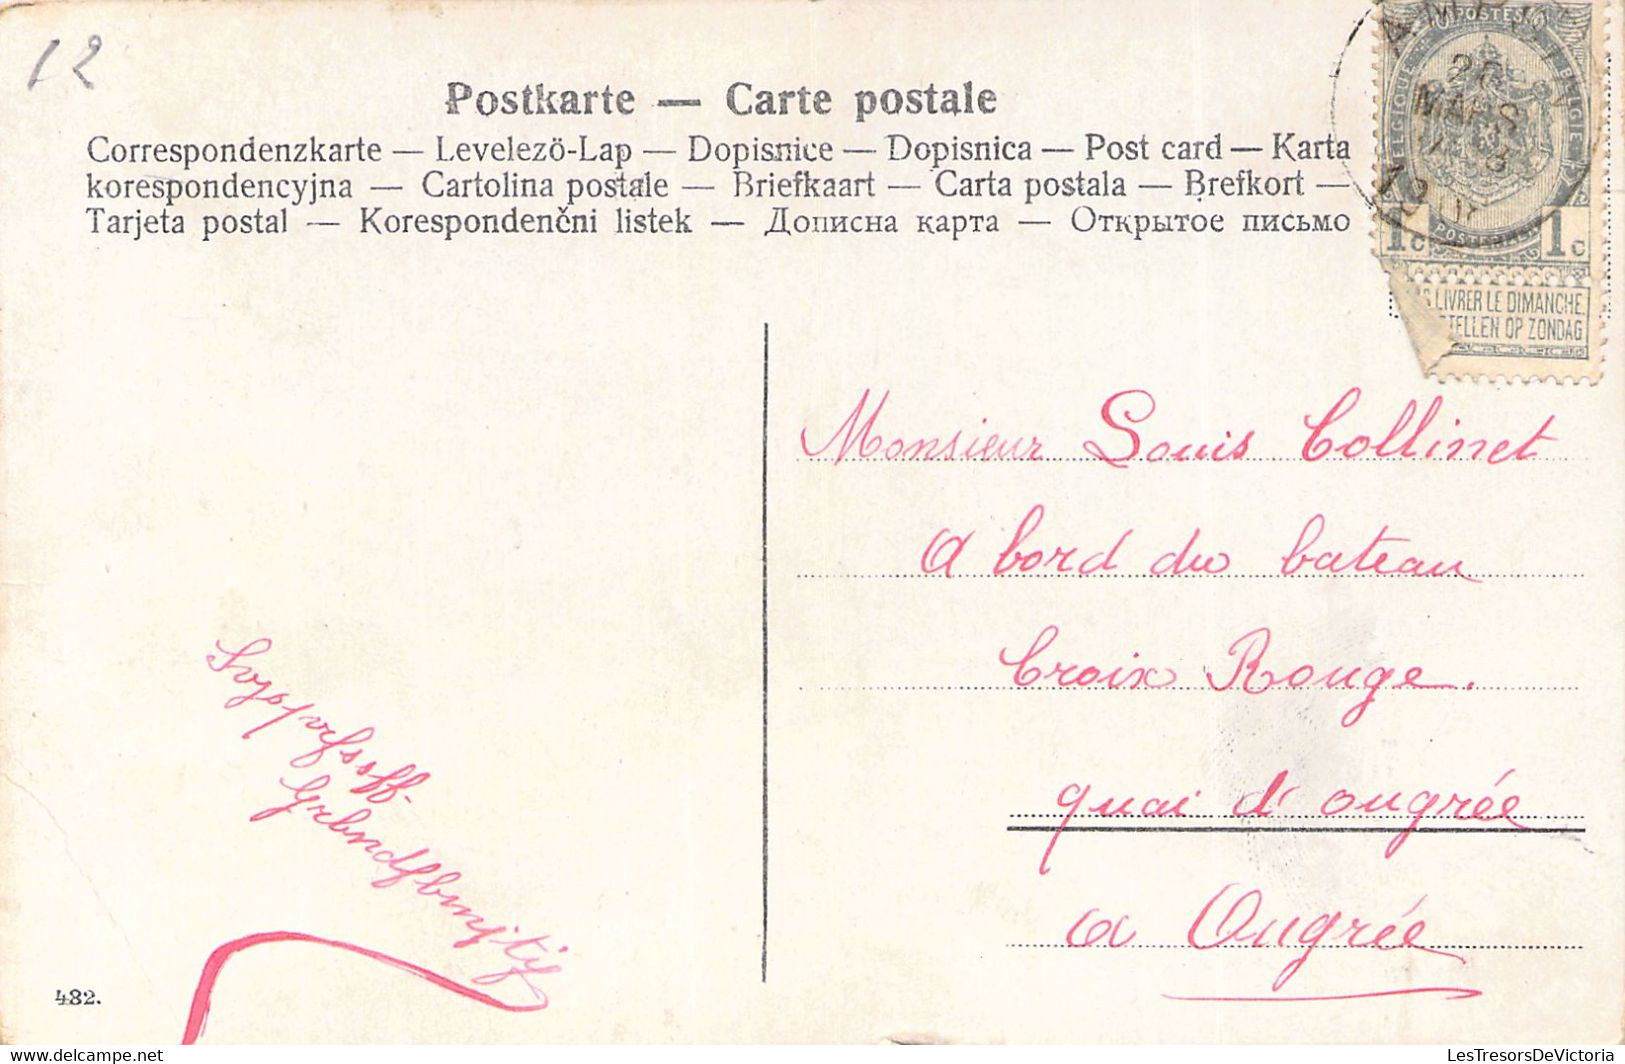 12
Postkarte — Carte postale
Correspondenzkarte — Levelezö-Lap — Dopisnice — Dopisnica — Post card — Karta
korespondencyjna — Cartolina postale — Briefkaart — Carta postala — Brefkort —
Tarjeta postal — Korespondenčni listek — Дописна карта — Открытое письмо
POSTES
BELGIQUE
BELGIE
26
MARS
POSTERIJEN
1c 1c
LIVRER LE DIMANCHE
OP ZONDAG
Monsieur Louis Collinet
a bord du bateau
Croix Rouge.
quai d'ougrée
a Ougrée
432.
LesTresorsDeVictoria
LesTresorsDeVictoria.com